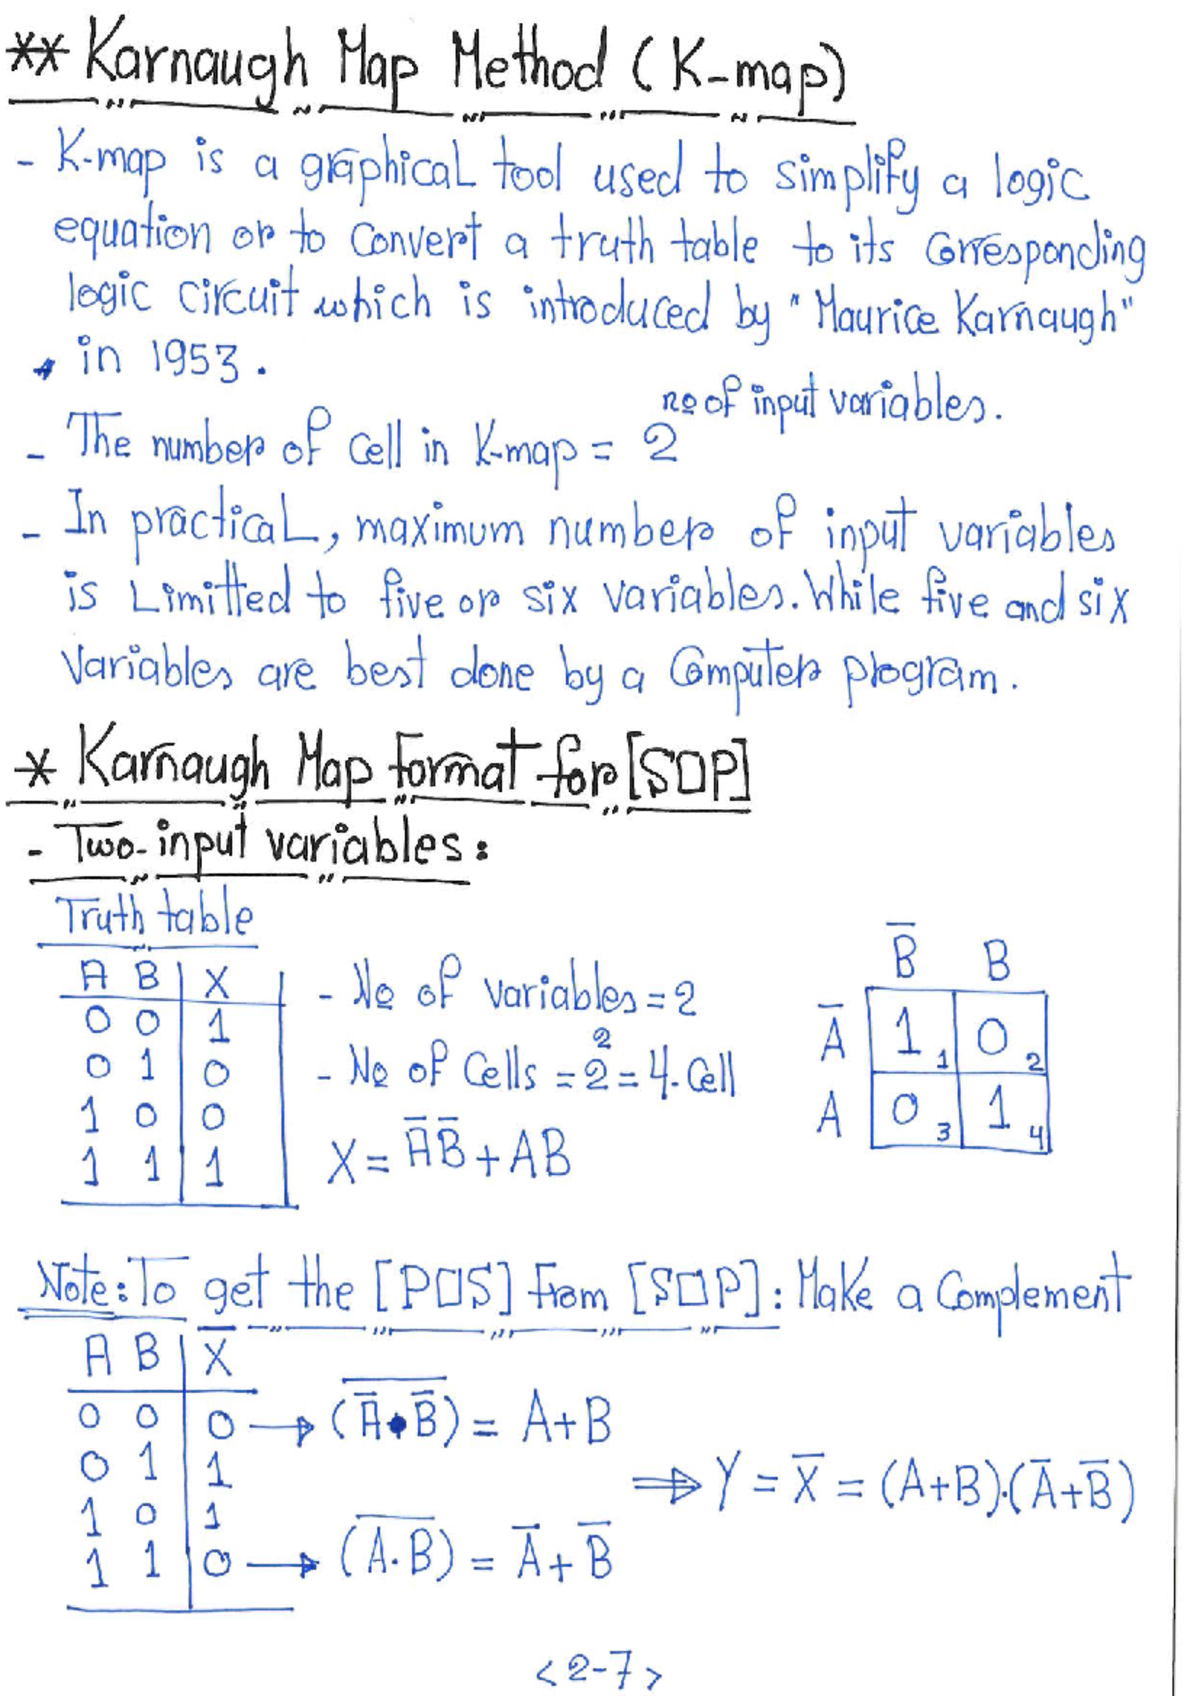 ** Karnaugh Map Method (K-map)
- K-map is a graphical tool used to simplify a logic
equation or to convert a truth table to its corresponding
logic circuit which is introduced by "Maurice Karnaugh"
in 1953.
- The number of cell in K-map = 2^no of input variables.
- In practical, maximum number of input variables
is Limitted to five or six variables. While five and six
variables are best done by a computer program.
* Karnaugh Map format for [SOP]
- Two-input variables:
Truth table
A B | X
0 0 | 1
0 1 | 0
1 0 | 0
1 1 | 1
- No of variables = 2
- No of cells = 2² = 4-cell
X = A̅B̅ + AB
B̅ B
A̅ 1 1 0 2
A 0 3 1 4
Note: To get the [POS] from [SOP]: Make a complement
A B | X̅
0 0 | 0 → (A̅•B̅)̅ = A+B
0 1 | 1
1 0 | 1
1 1 | 0 → (A.B)̅ = A̅ + B̅
⇒ Y = X̅ = (A+B).(A̅+B̅)
<2-7>